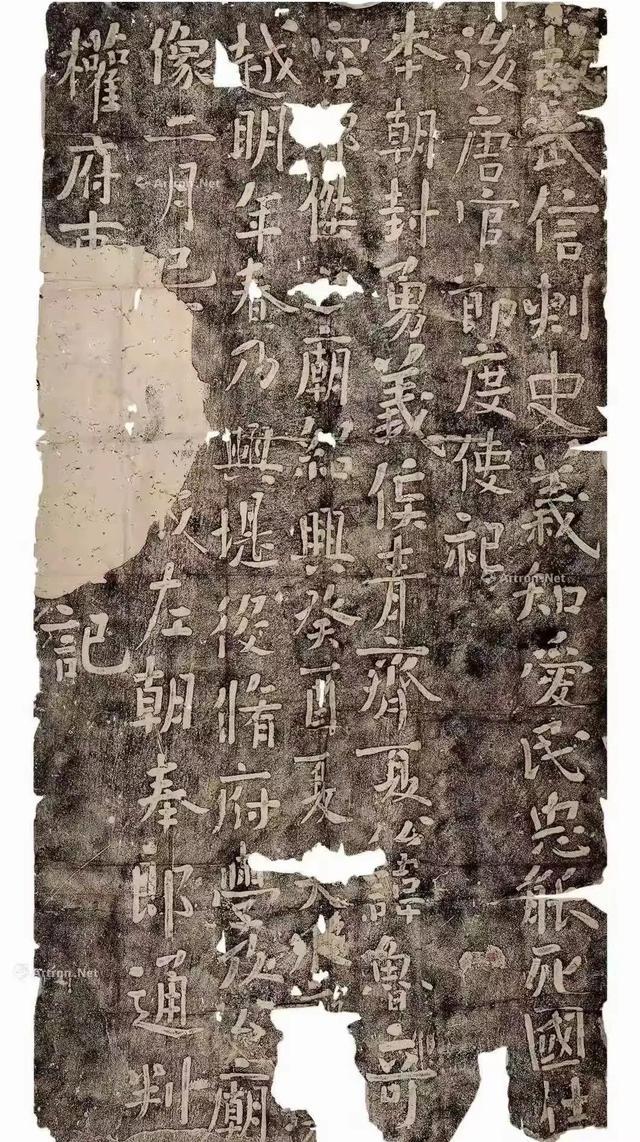 故武信刺史義知愛民忠能死國仕
後唐官節度使祀
本朝封勇義侯青齊夏公諱魯奇
字傑廟紹興癸酉夏大
越明年春乃興堤役脩府學及公廟
像二月左朝奉郎通判
權府事記
Artron.Net
Artron.Net
Artron.Net